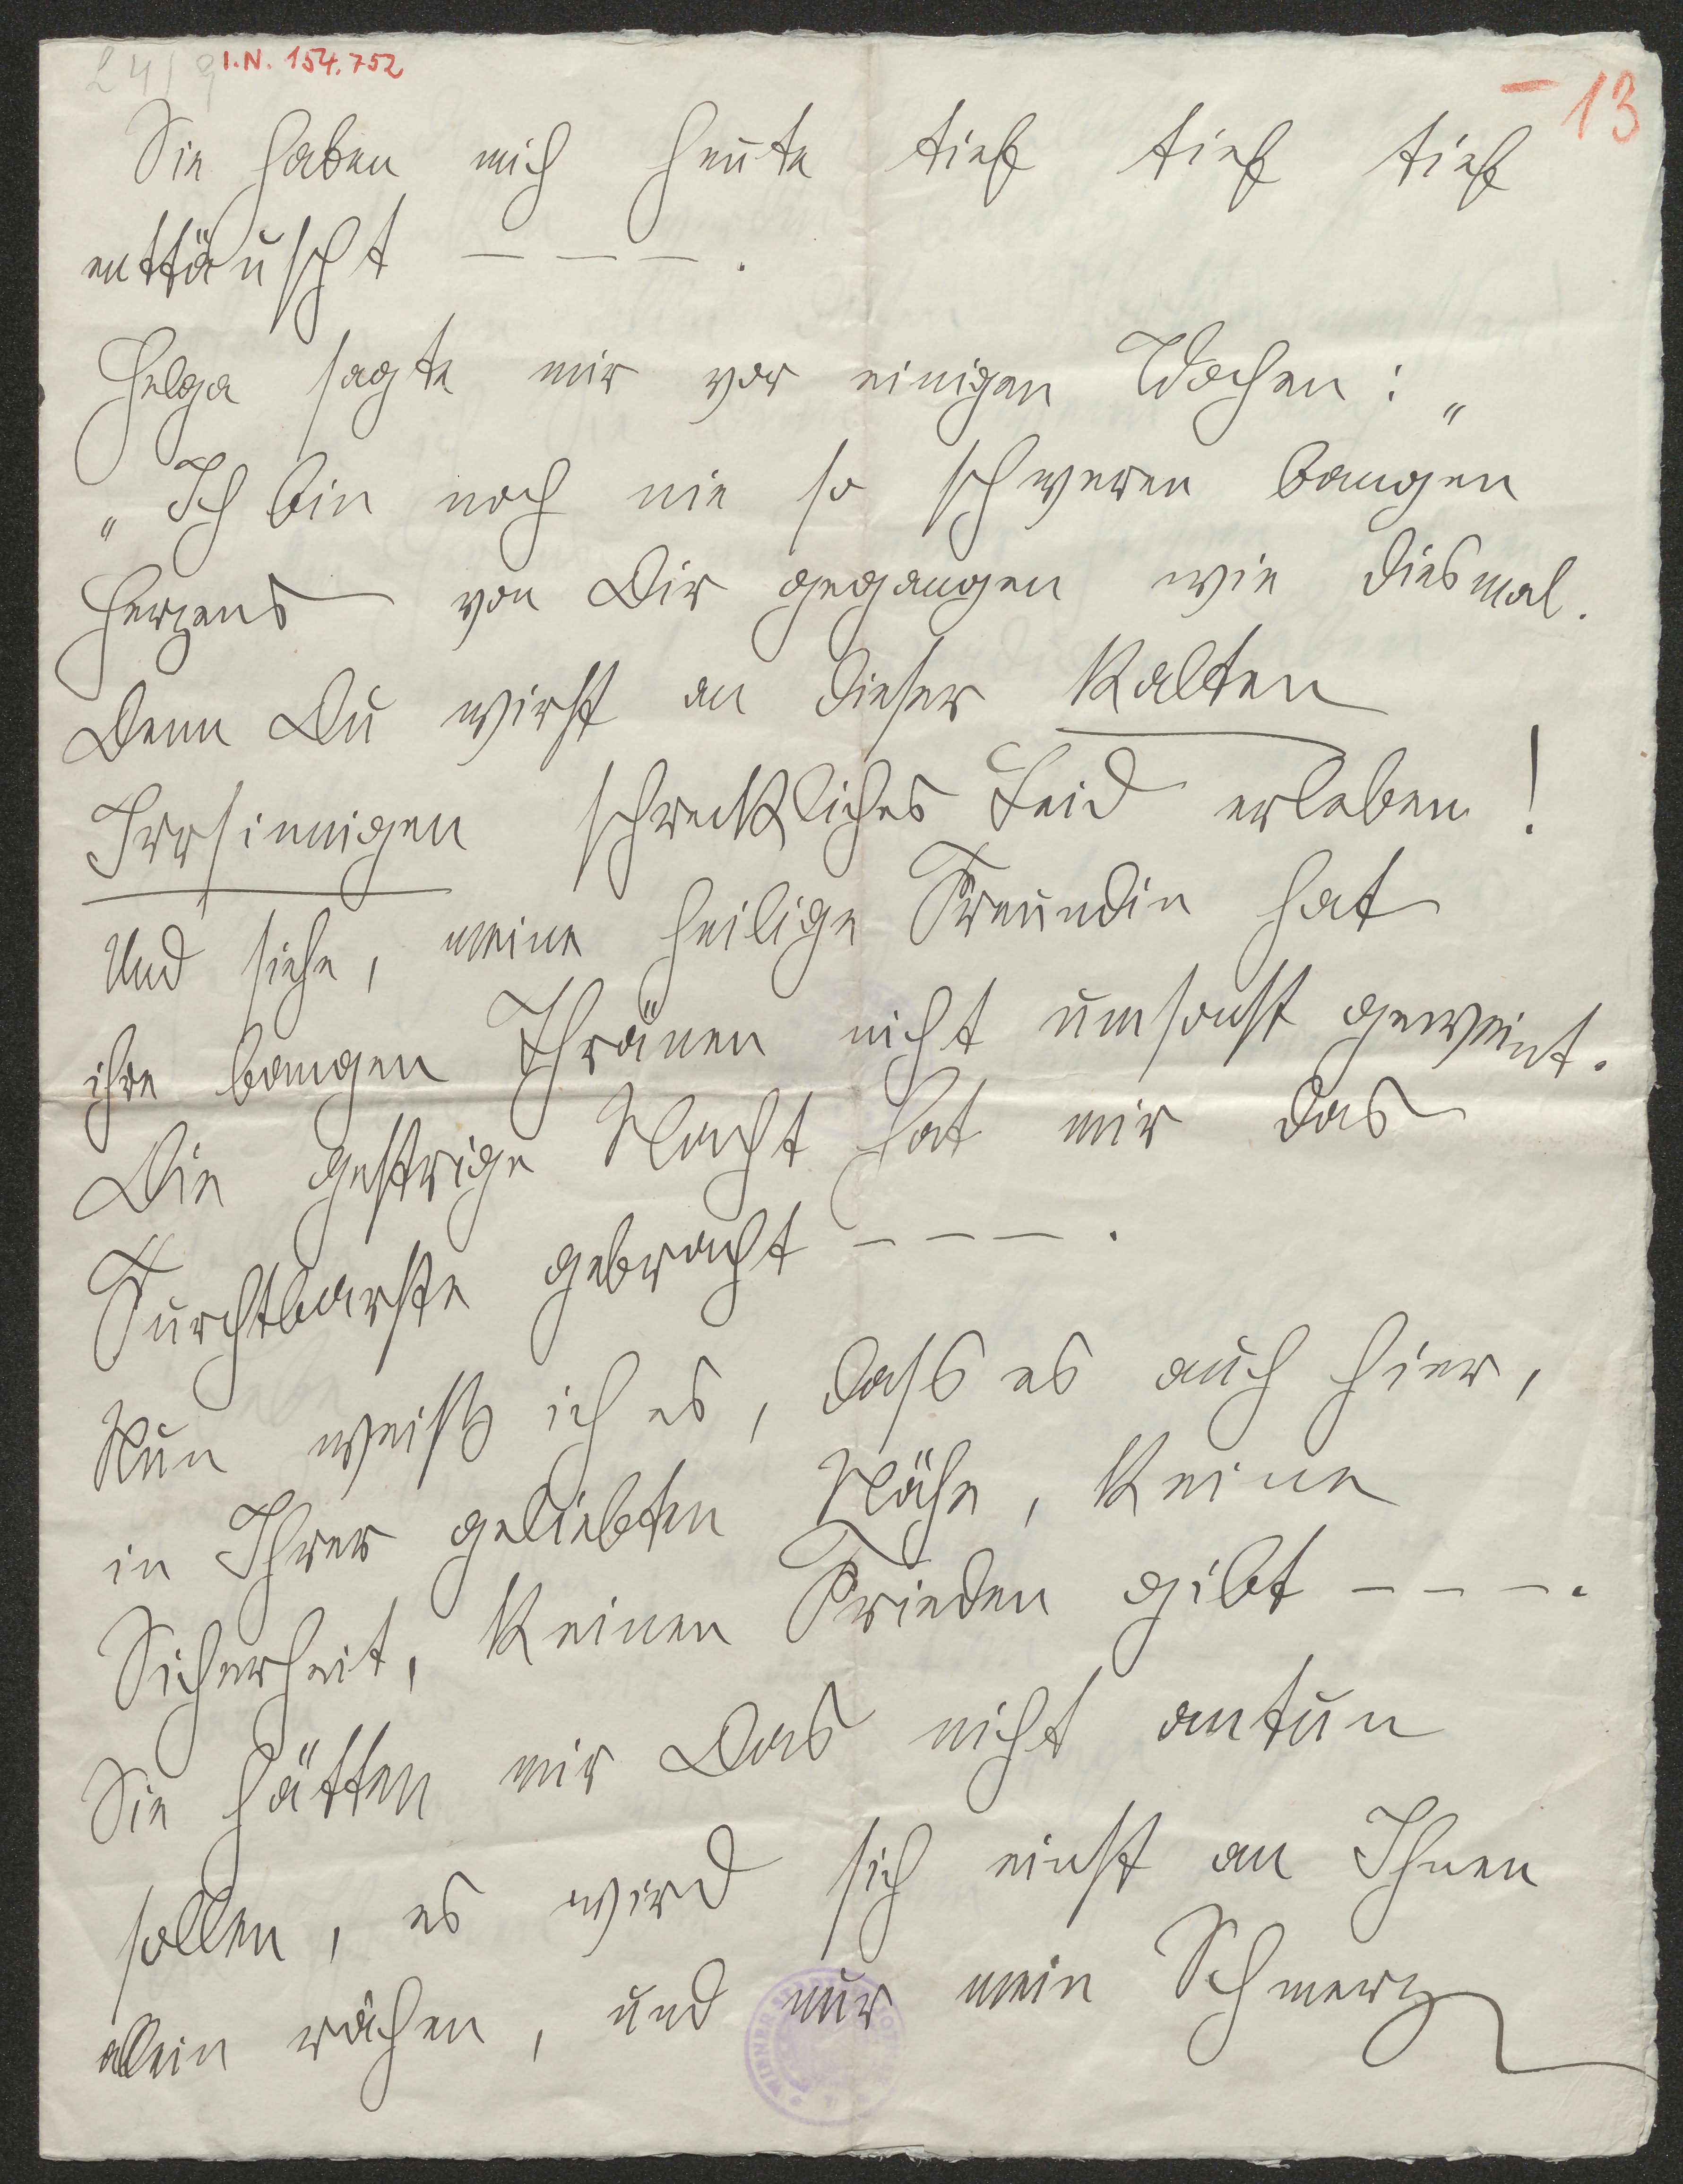 24/9 I.N. 154.752
– 13
Sie haben mich heute tief tief tief
enttäuscht – – – .
Helga sagte mir vor einigen Wochen: „
„Ich bin noch nie so schweren bangen
Herzens von Dir gegangen wie diesmal.
Denn Du wirst an dieser kalten
Irrsinnigen schreckliches Leid erleben!
Und siehe, meine heilige Freundin hat
ihre bangen Thränen nicht umsonst geweint.
Die gestrige Nacht hat mir das
Furchtbarste gebracht – – – .
Nun weiß ich es, dass es auch hier,
in Ihrer geliebten Nähe, keine
Sicherheit, keinen Frieden gibt – – – .
Sie hätten mir Das nicht antun
sollen, es wird sich einst an Ihnen
allein rächen, und nur mein Schmerz
WIENER